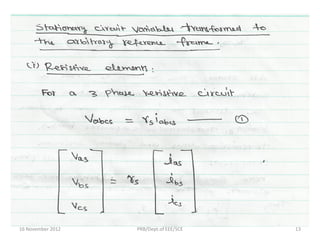 Stationary circuit variables transformed to
the arbitrary reference frame.
(i) Resistive elements:
For a 3 Phase resistive circuit
Vabcs = rs iabcs —— ①
[Vas Vbs Vcs] = rs [ias ibs ics]
10 November 2012 PRB/Dept.of EEE/SCE 13